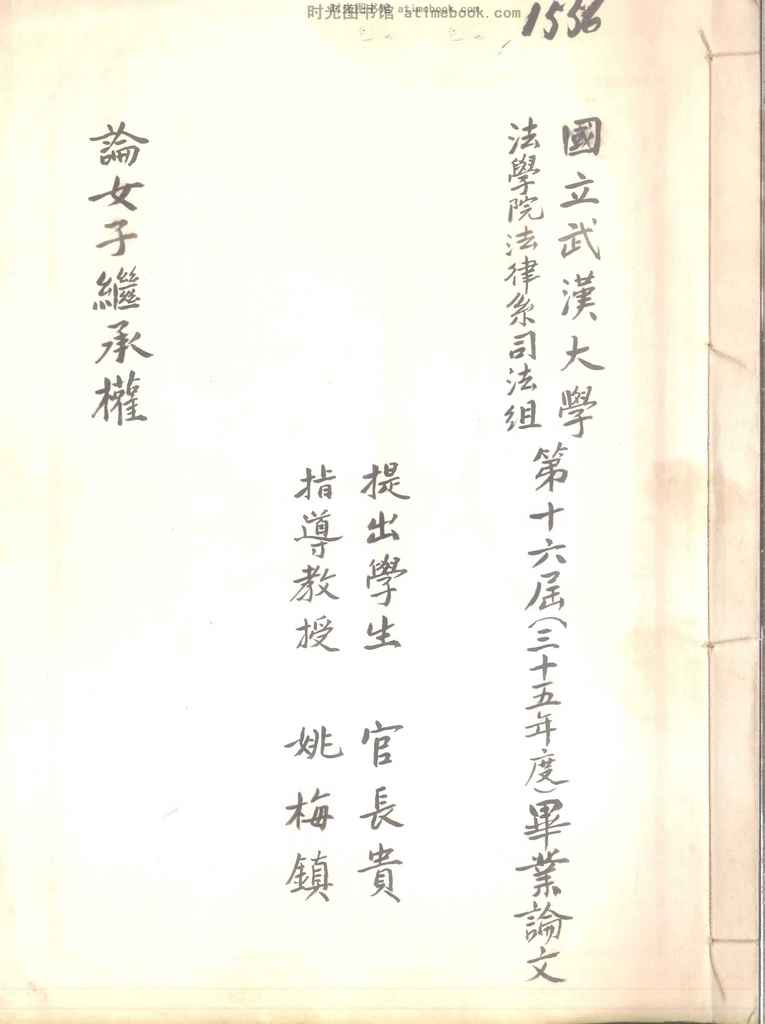 时光图书馆 atimebook.com
1556
國立武漢大學
法學院法律系司法組
第十六屆(三十五年度)畢業論文
提出學生 官長貴
指導教授 姚梅鎮
論女子繼承權